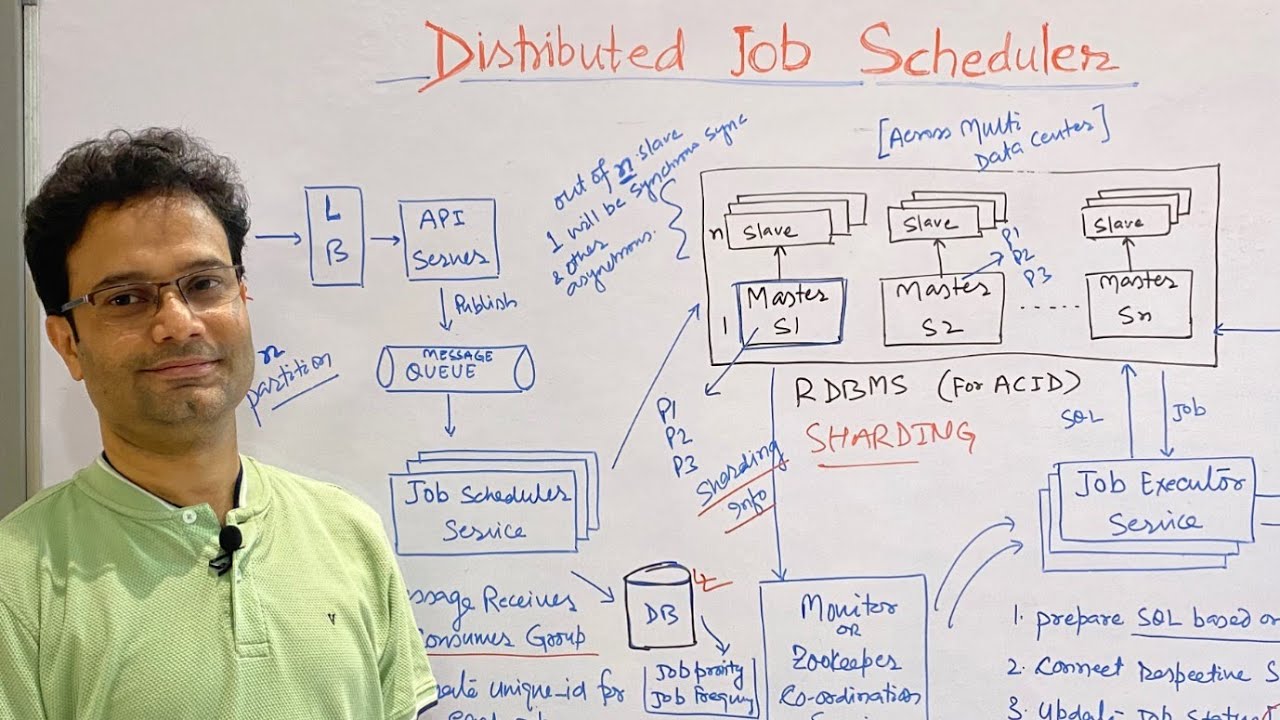 Distributed Job Scheduler
[Across Multi
Data Center]
out of n slave
1 will be synchronous sync
& other
asynchronous.
L
B
API
Server
Publish
MESSAGE
QUEUE
n
partition
Job Scheduler
Service
n
Slave
Slave
Slave
1
Master
S1
Master
S2
P1
P2
P3
......
Master
Sn
P1
P2
P3
RDBMS (For ACID)
SHARDING
Sharding
Info
SQL
Job
Job Executor
Service
DB
Job prority
Job Frequny
Monitor
or
Zookeeper
Co-ordination
ssage Receives
Consumer Group
unique_id for
1. prepare SQL based on
2. Connect Respective S
3. Update Job Status